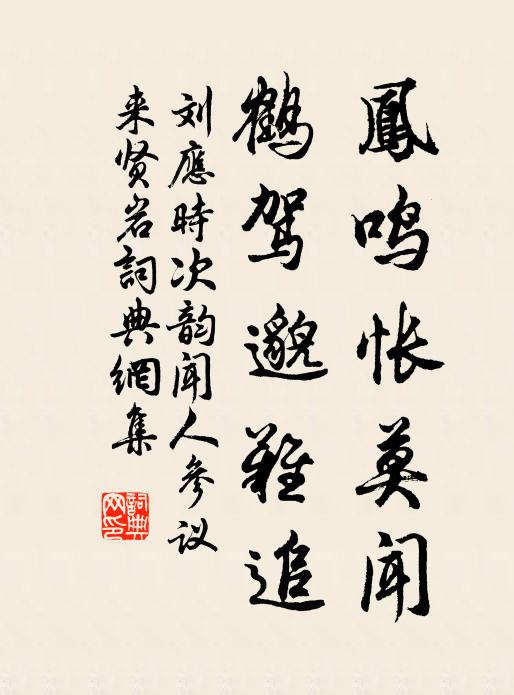 鳳鸣怅莫闻
鹤驾邈难追
刘應時次韵闻人參议
来贤岩詞典網集
詞典网印